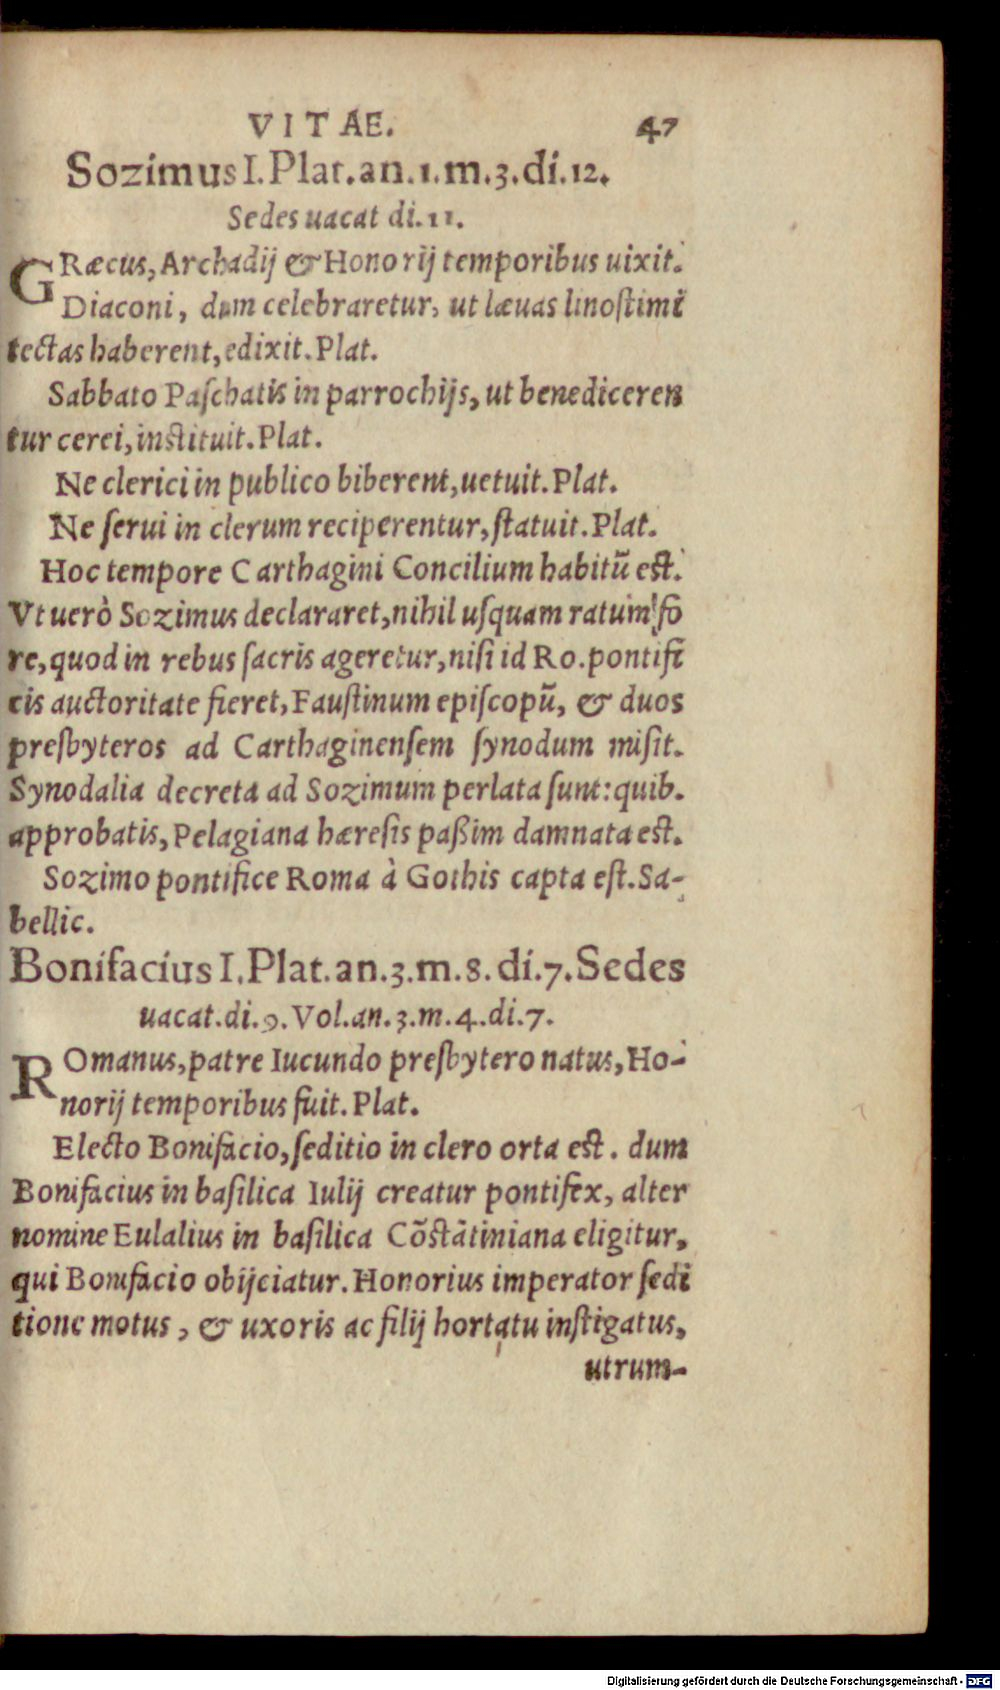 VITAE. 47
Sozimus I. Plat. an. 1. m. 3. di. 12.
Sedes uacat di. 11.
GRæcus, Archadij & Honorij temporibus uixit.
Diaconi, dum celebraretur, ut læuas linoſtimi
tectas haberent, edixit. Plat.
Sabbato Paſchatis in parrochijs, ut benediceren
tur cerei, inſtituit. Plat.
Ne clerici in publico biberent, uetuit. Plat.
Ne ſerui in clerum reciperentur, ſtatuit. Plat.
Hoc tempore Carthagini Concilium habitū eſt.
Vt uerò Sozimus declararet, nihil uſquam ratum fo
re, quod in rebus ſacris ageretur, niſi id Ro. pontifi
cis auctoritate fieret, Fauſtinum epiſcopū, & duos
preſbyteros ad Carthaginenſem ſynodum miſit.
Synodalia decreta ad Sozimum perlata ſunt: quib.
approbatis, Pelagiana hæreſis paßim damnata eſt.
Sozimo pontifice Roma à Gothis capta eſt. Sa-
bellic.
Bonifacius I. Plat. an. 3. m. 8. di. 7. Sedes
uacat. di. 9. Vol. an. 3. m. 4. di. 7.
ROmanus, patre Iucundo preſbytero natus, Ho-
norij temporibus fuit. Plat.
Electo Bonifacio, ſeditio in clero orta eſt. dum
Bonifacius in baſilica Iulij creatur pontifex, alter
nomine Eulalius in baſilica Cōſtātiniana eligitur,
qui Bonifacio obijciatur. Honorius imperator ſedi
tione motus, & uxoris ac filij hortatu inſtigatus,
utrum-
Digitalisierung gefördert durch die Deutsche Forschungsgemeinschaft - DFG